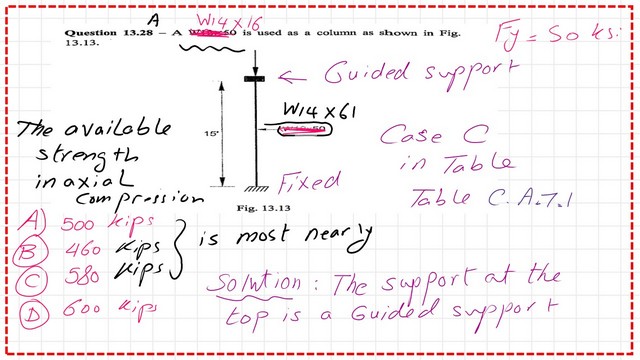 A W14X16
Question 13.28 – A is used as a column as shown in Fig. 13.13.
Fy = 50 ksi
← Guided support
W14X61
15'
Fixed
Fig. 13.13
The available
strength
in axial
compression
A) 500 kips
B) 460 kips
C) 580 kips
D) 600 kips
is most nearly
Case C
in Table
Table C.A.7.1
Solution: The support at the
top is a Guided support